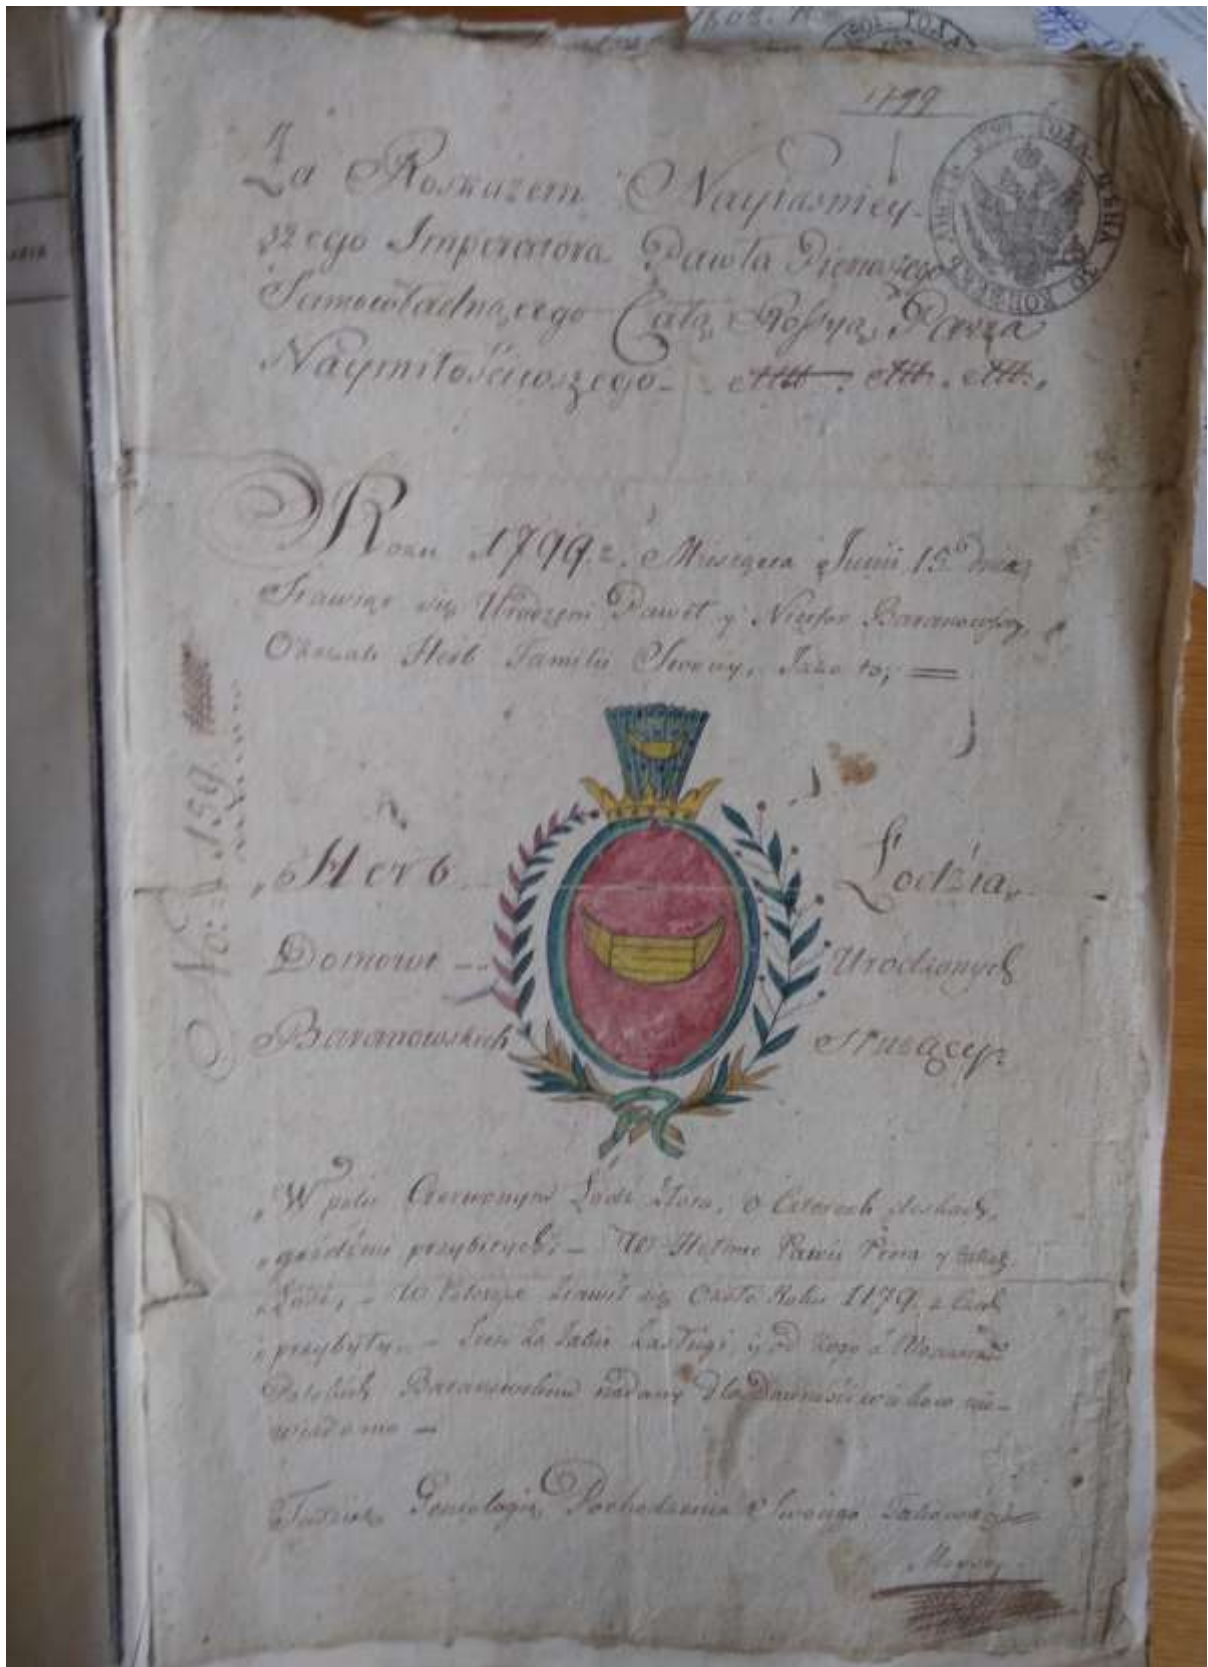 1799
Za Roskazem Nayiasniey-
szego Imperatora Pawła Pierwszego
Samowładnącego Całą Rossyą Pana
Naymiłościwszego
Roku 1799. Miesiąca Junii 15 dnia
Stawiąc się Urodzeni Paweł y Baranowscy,
Okazali Herb Familii Swoiey, Jako to;
No: 159
Herb Łodzia
Domowi Urodzonych
Baranowskich Służący
W polu Czerwonym Łódź Złota, o czterech deskach,
goździmi przybitych; – W Hełmie Pawie Pióra y takaż
Łódź, – w Polszcze ziawił się Około Roku 1179. z Czech
przybyły. – Lecz za Jakie Zasługi, y od kogo z
Baranowskim nadany dla Dawności wieków nie-
wiadomo –
Tudzież Genealogią Pochodzenia Swoiego